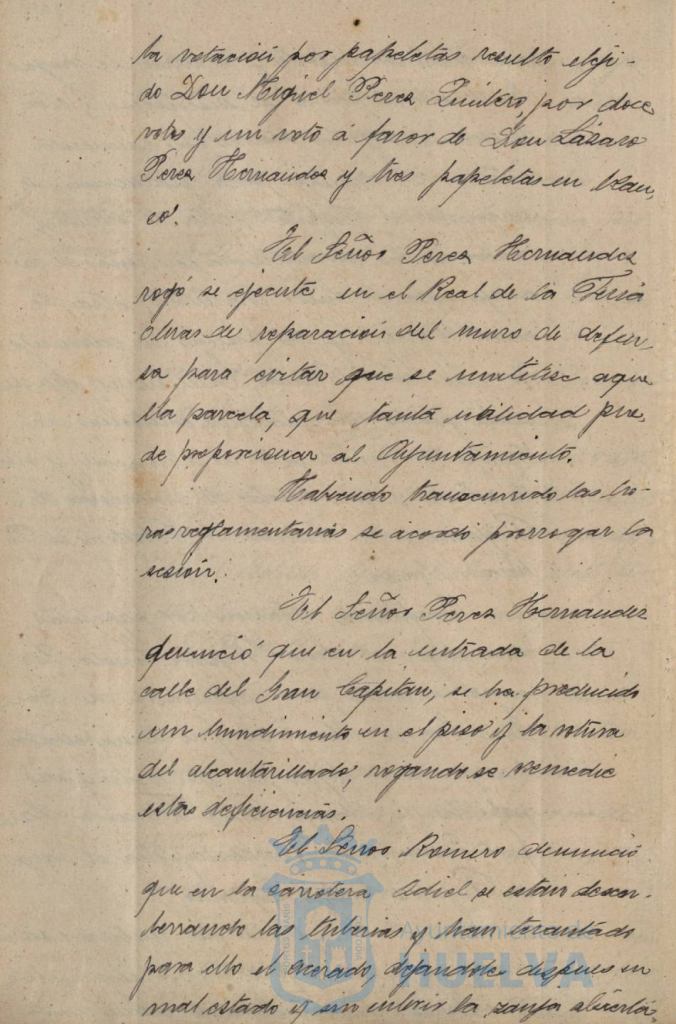 la votación por papeletas resultó eleji-
do Don Miguel Perez Quintero, por doce
votos y un voto á favor de Don Lázaro
Perez Hernandez y tres papeletas en blan-
co.
El Señor Perez Hernandez
rogó se ejecute en el Real de la Feria
obras de reparación del muro de defen-
sa para evitar que se inutilise aque
lla parcela, que tanta utilidad pue-
de proporcionar al Ayuntamiento.
Habiendo transcurrido las ho-
ras reglamentarias se acordó prorrogar la
sesión.
El Señor Perez Hernandez
denunció que en la entrada de la
calle del Gran Capitan, se ha producido
un hundimiento en el piso y la rotura
del alcantarillado, rogando se remedie
estas deficiencias.
El Señor Romero denunció
que en la carretera Odiel se están desen-
terrando las tuberias y han levantado
para ello el acerado, dejandole despues en
mal estado y sin cubrir la zanja abierta.
HUELVA